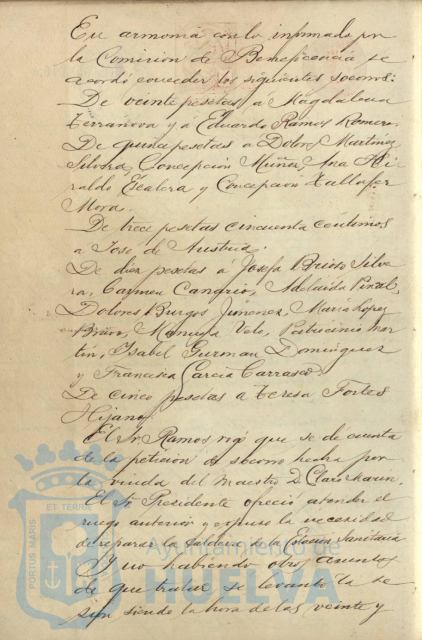 En armonia con lo informado por
la Comision de Beneficencia se
acordó conceder los siguientes socorros:
De veinte pesetas á Magdalena
Terranova y á Eduardo Ramos Romero.
De quince pesetas á Dolores Martinez
Silvera, Concepción Muñoz, Ana
Escalera y Concepcion
Mora.
De trece pesetas cincuenta centimos
a Jose de Austria.
De diez pesetas á Josefa Brioso Silve
ra, Carmen Canario, Adelaida
Dolores Burgos Jimenez, Maria Lopez
Manuela Velo, Patrocinio Mar
tin, Isabel Guzman Dominguez
y Francisca Garcia Carrasco.
De cinco pesetas a Teresa Fortes
Hijano.
El Sr. Ramos rogó que se de cuenta
de la peticion de socorro hecha por
la viuda del Maestro D. Claro
El Sr Presidente ofreció atender el
ruego anterior y expuso la necesidad
de reparar la caldera de la Estación Sanitaria
Y no habiendo otros asuntos
de que tratar se levantó la se
sion siendo la hora de las veinte y
PORTUS MARIS ET TERRE
Ayuntamiento de
HUELVA